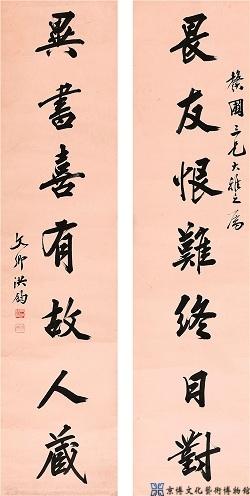 三兄大雅之屬
畏友恨難終日對
異書喜有故人藏
文卿洪鈞
京博文化藝術博物館